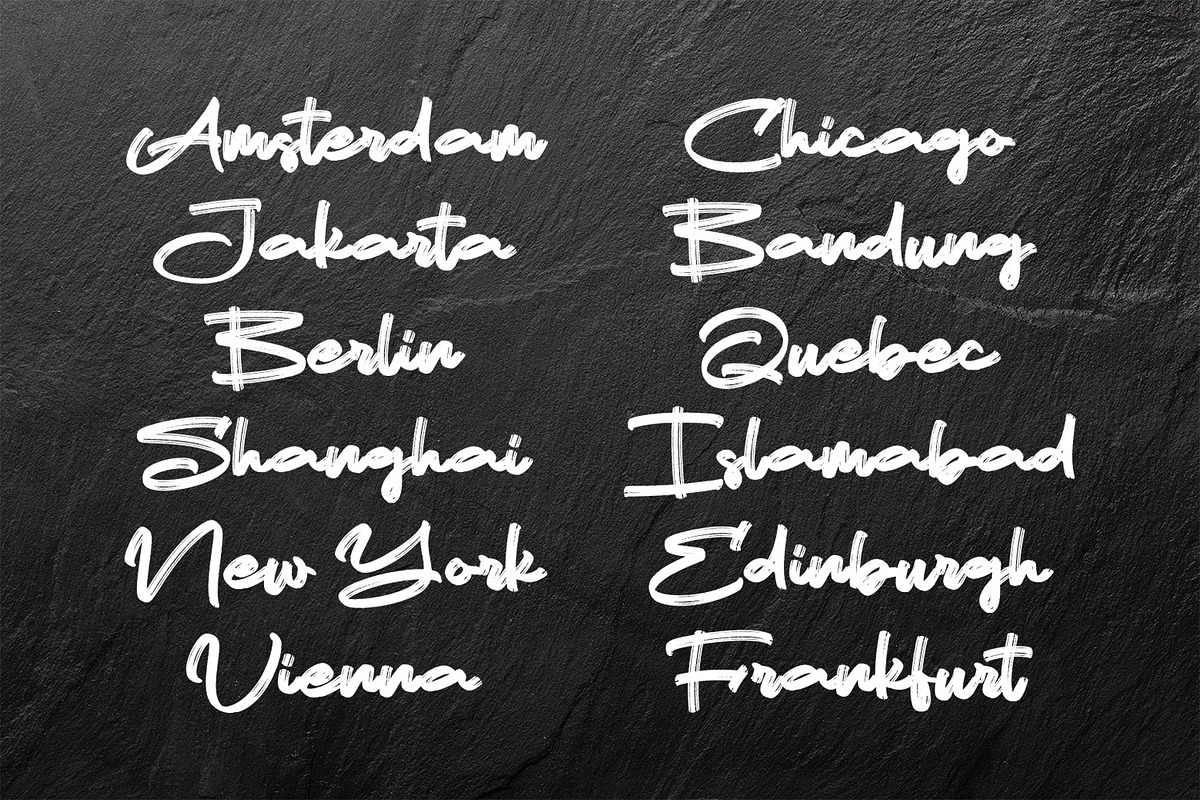 Amsterdam
Jakarta
Berlin
Shanghai
New York
Vienna
Chicago
Bandung
Quebec
Islamabad
Edinburgh
Frankfurt